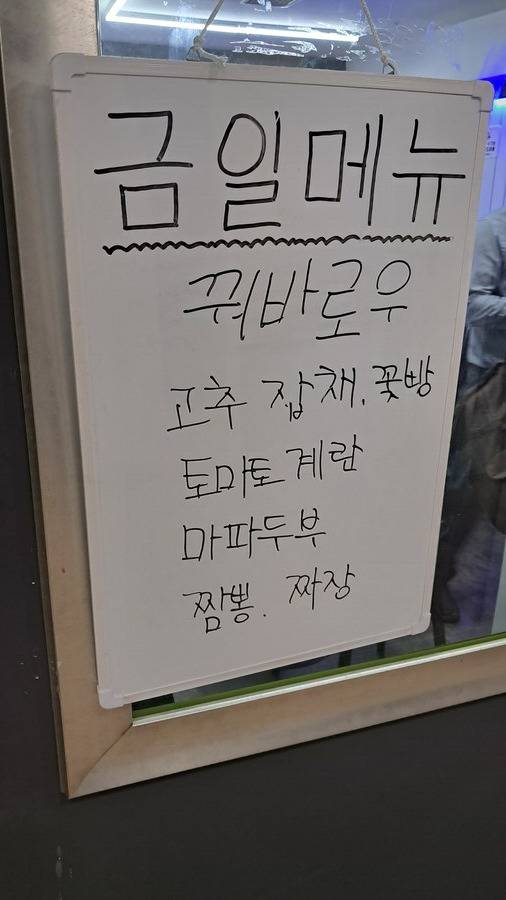 금일메뉴
꿔바로우
고추 잡채. 꽃빵
토마토계란
마파두부
짬뽕. 짜장